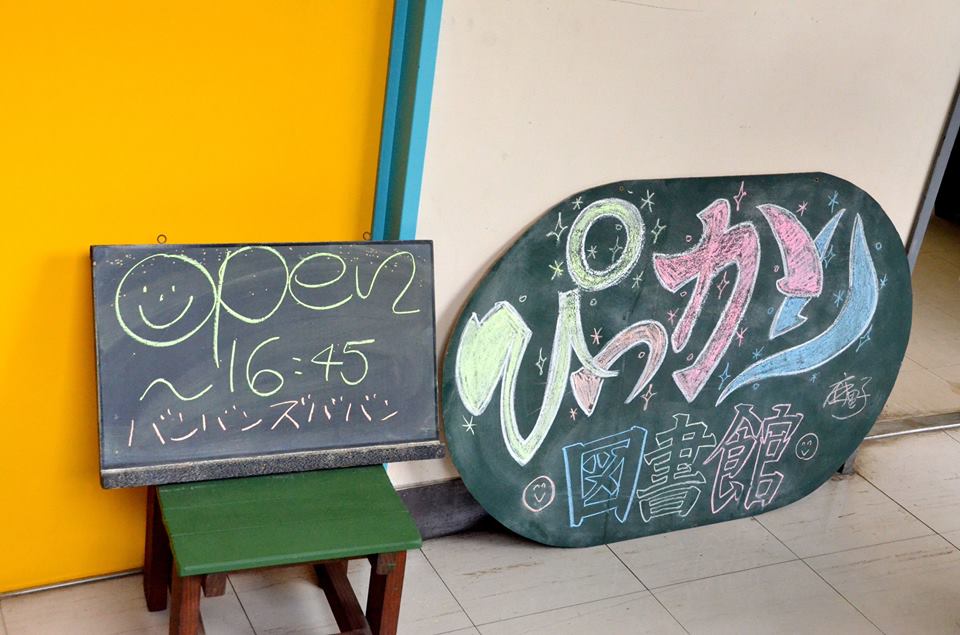 Open
〜16:45
バンバンズババン
ぴっカリ
図書館